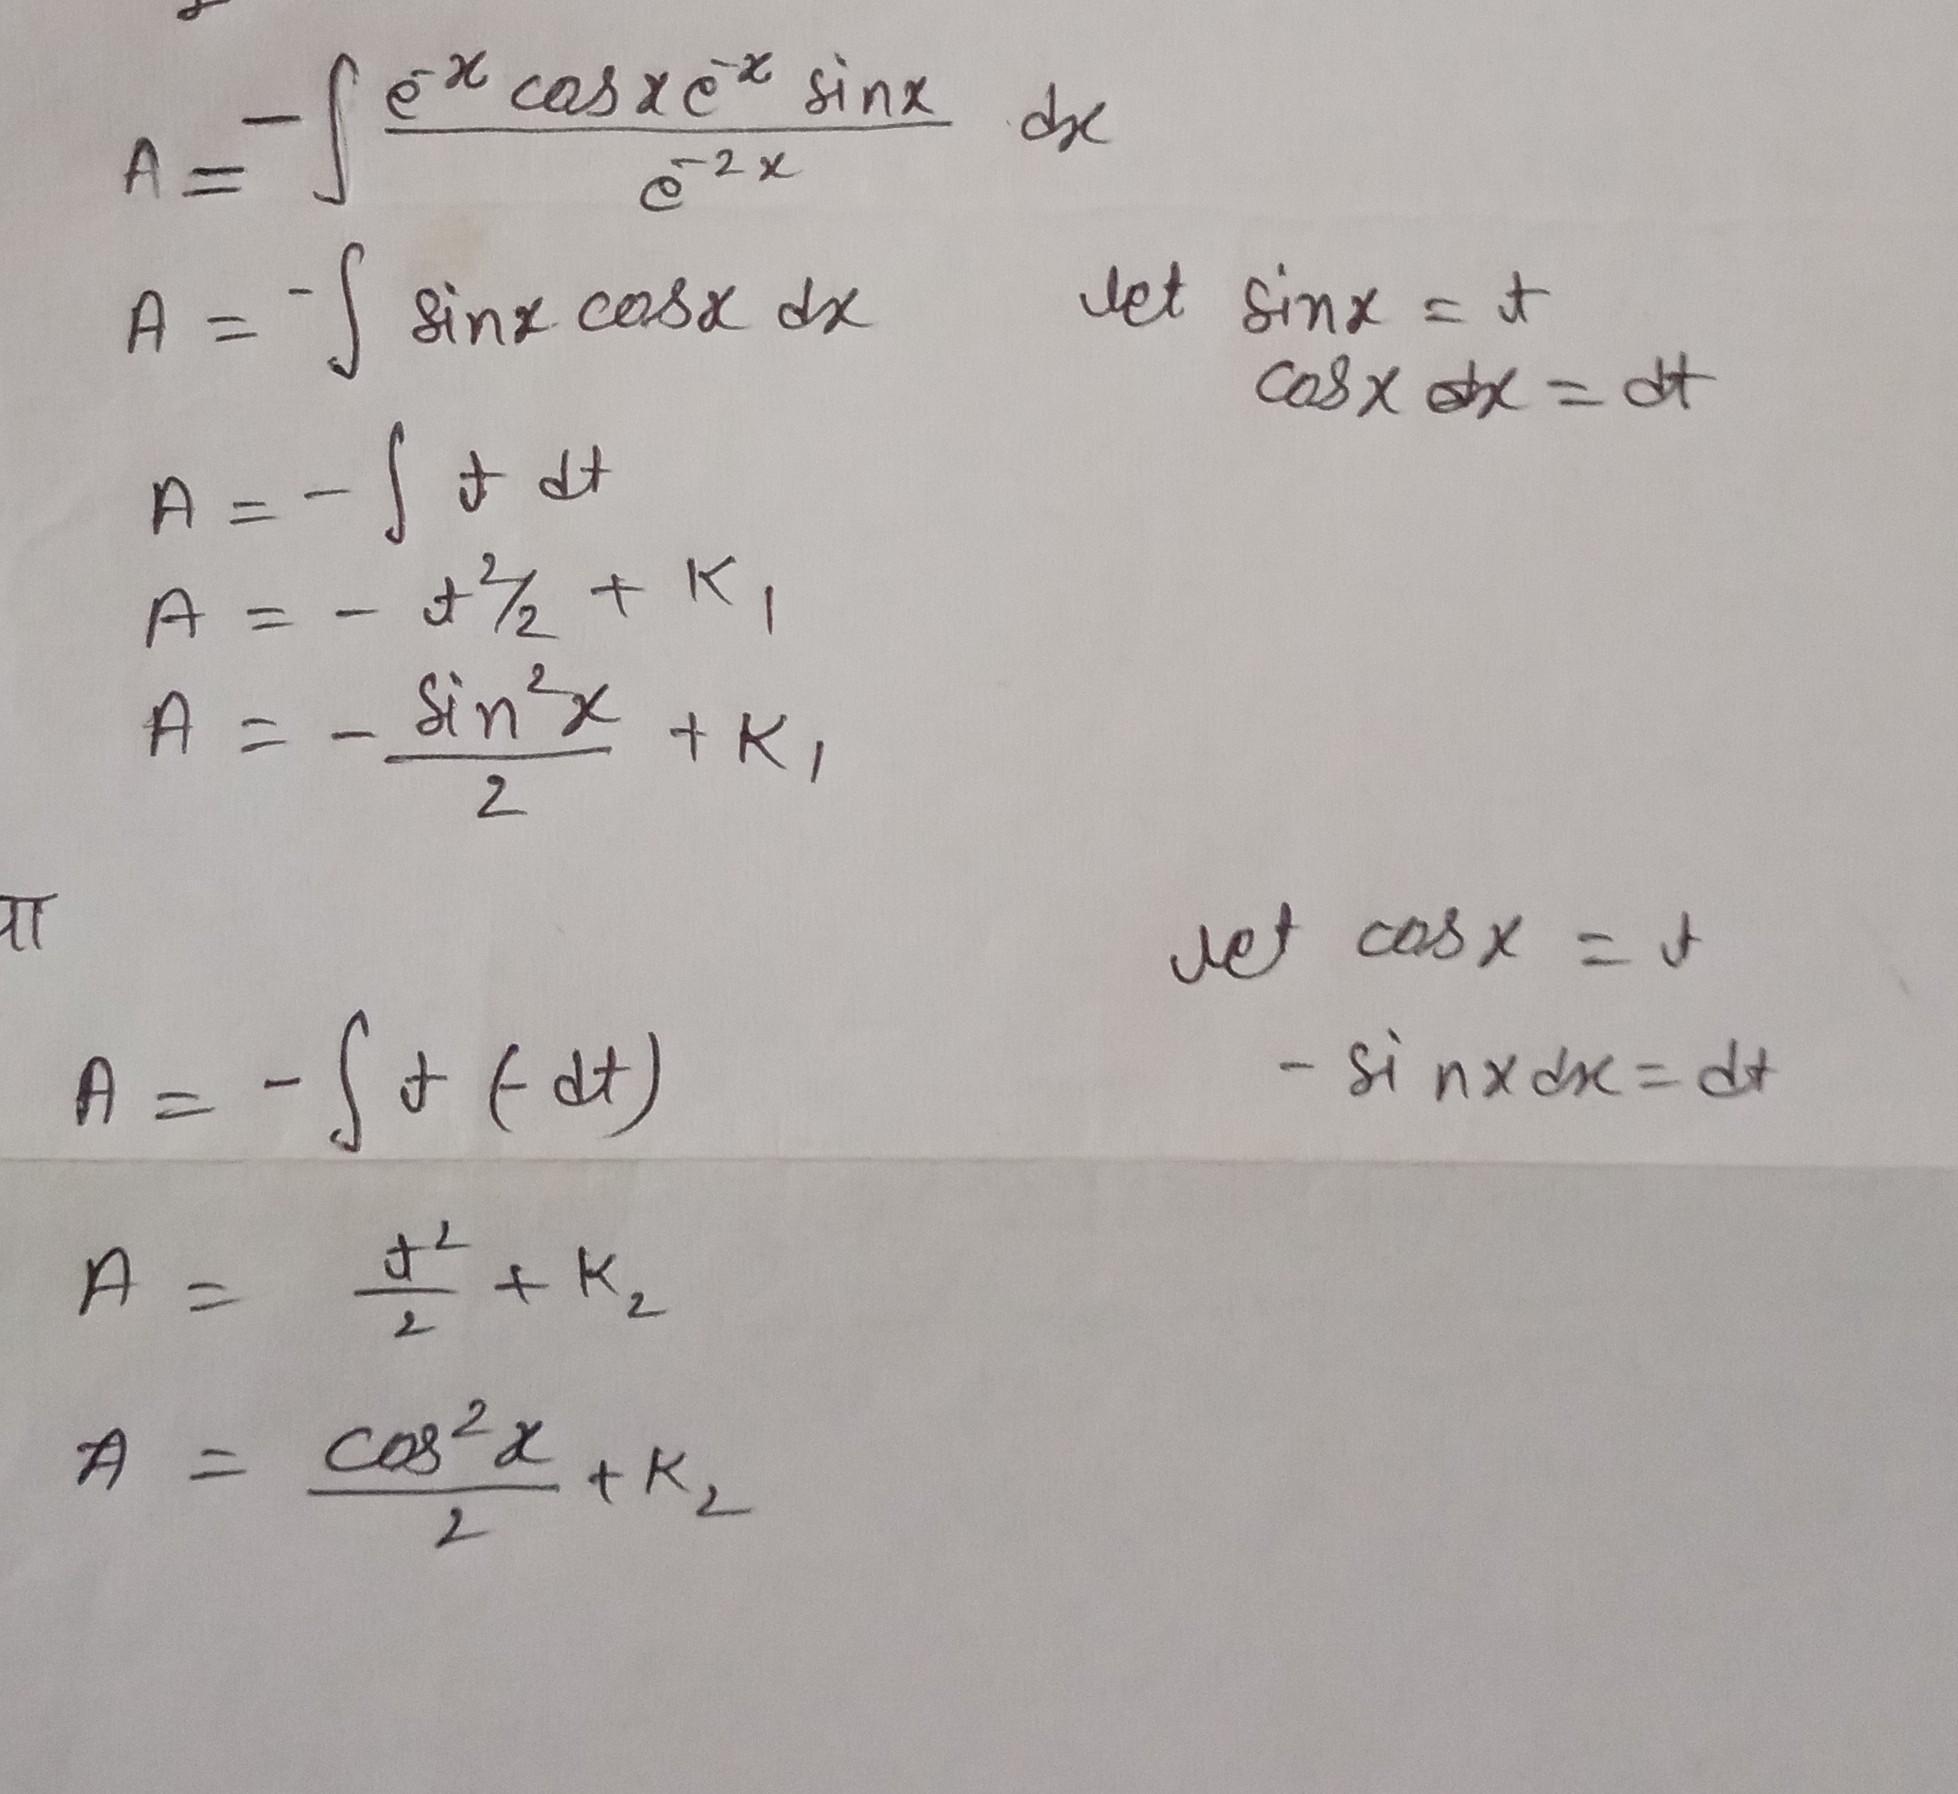 A = -∫ e^-x cosx e^-x sinx / e^-2x dx
A = -∫ sinx cosx dx let sinx = t
cosx dx = dt
A = -∫ t dt
A = - t²/2 + K₁
A = - sin²x / 2 + K₁
let cosx = t
A = -∫ t (-dt) - sinx dx = dt
A = t²/2 + K₂
A = cos²x / 2 + K₂